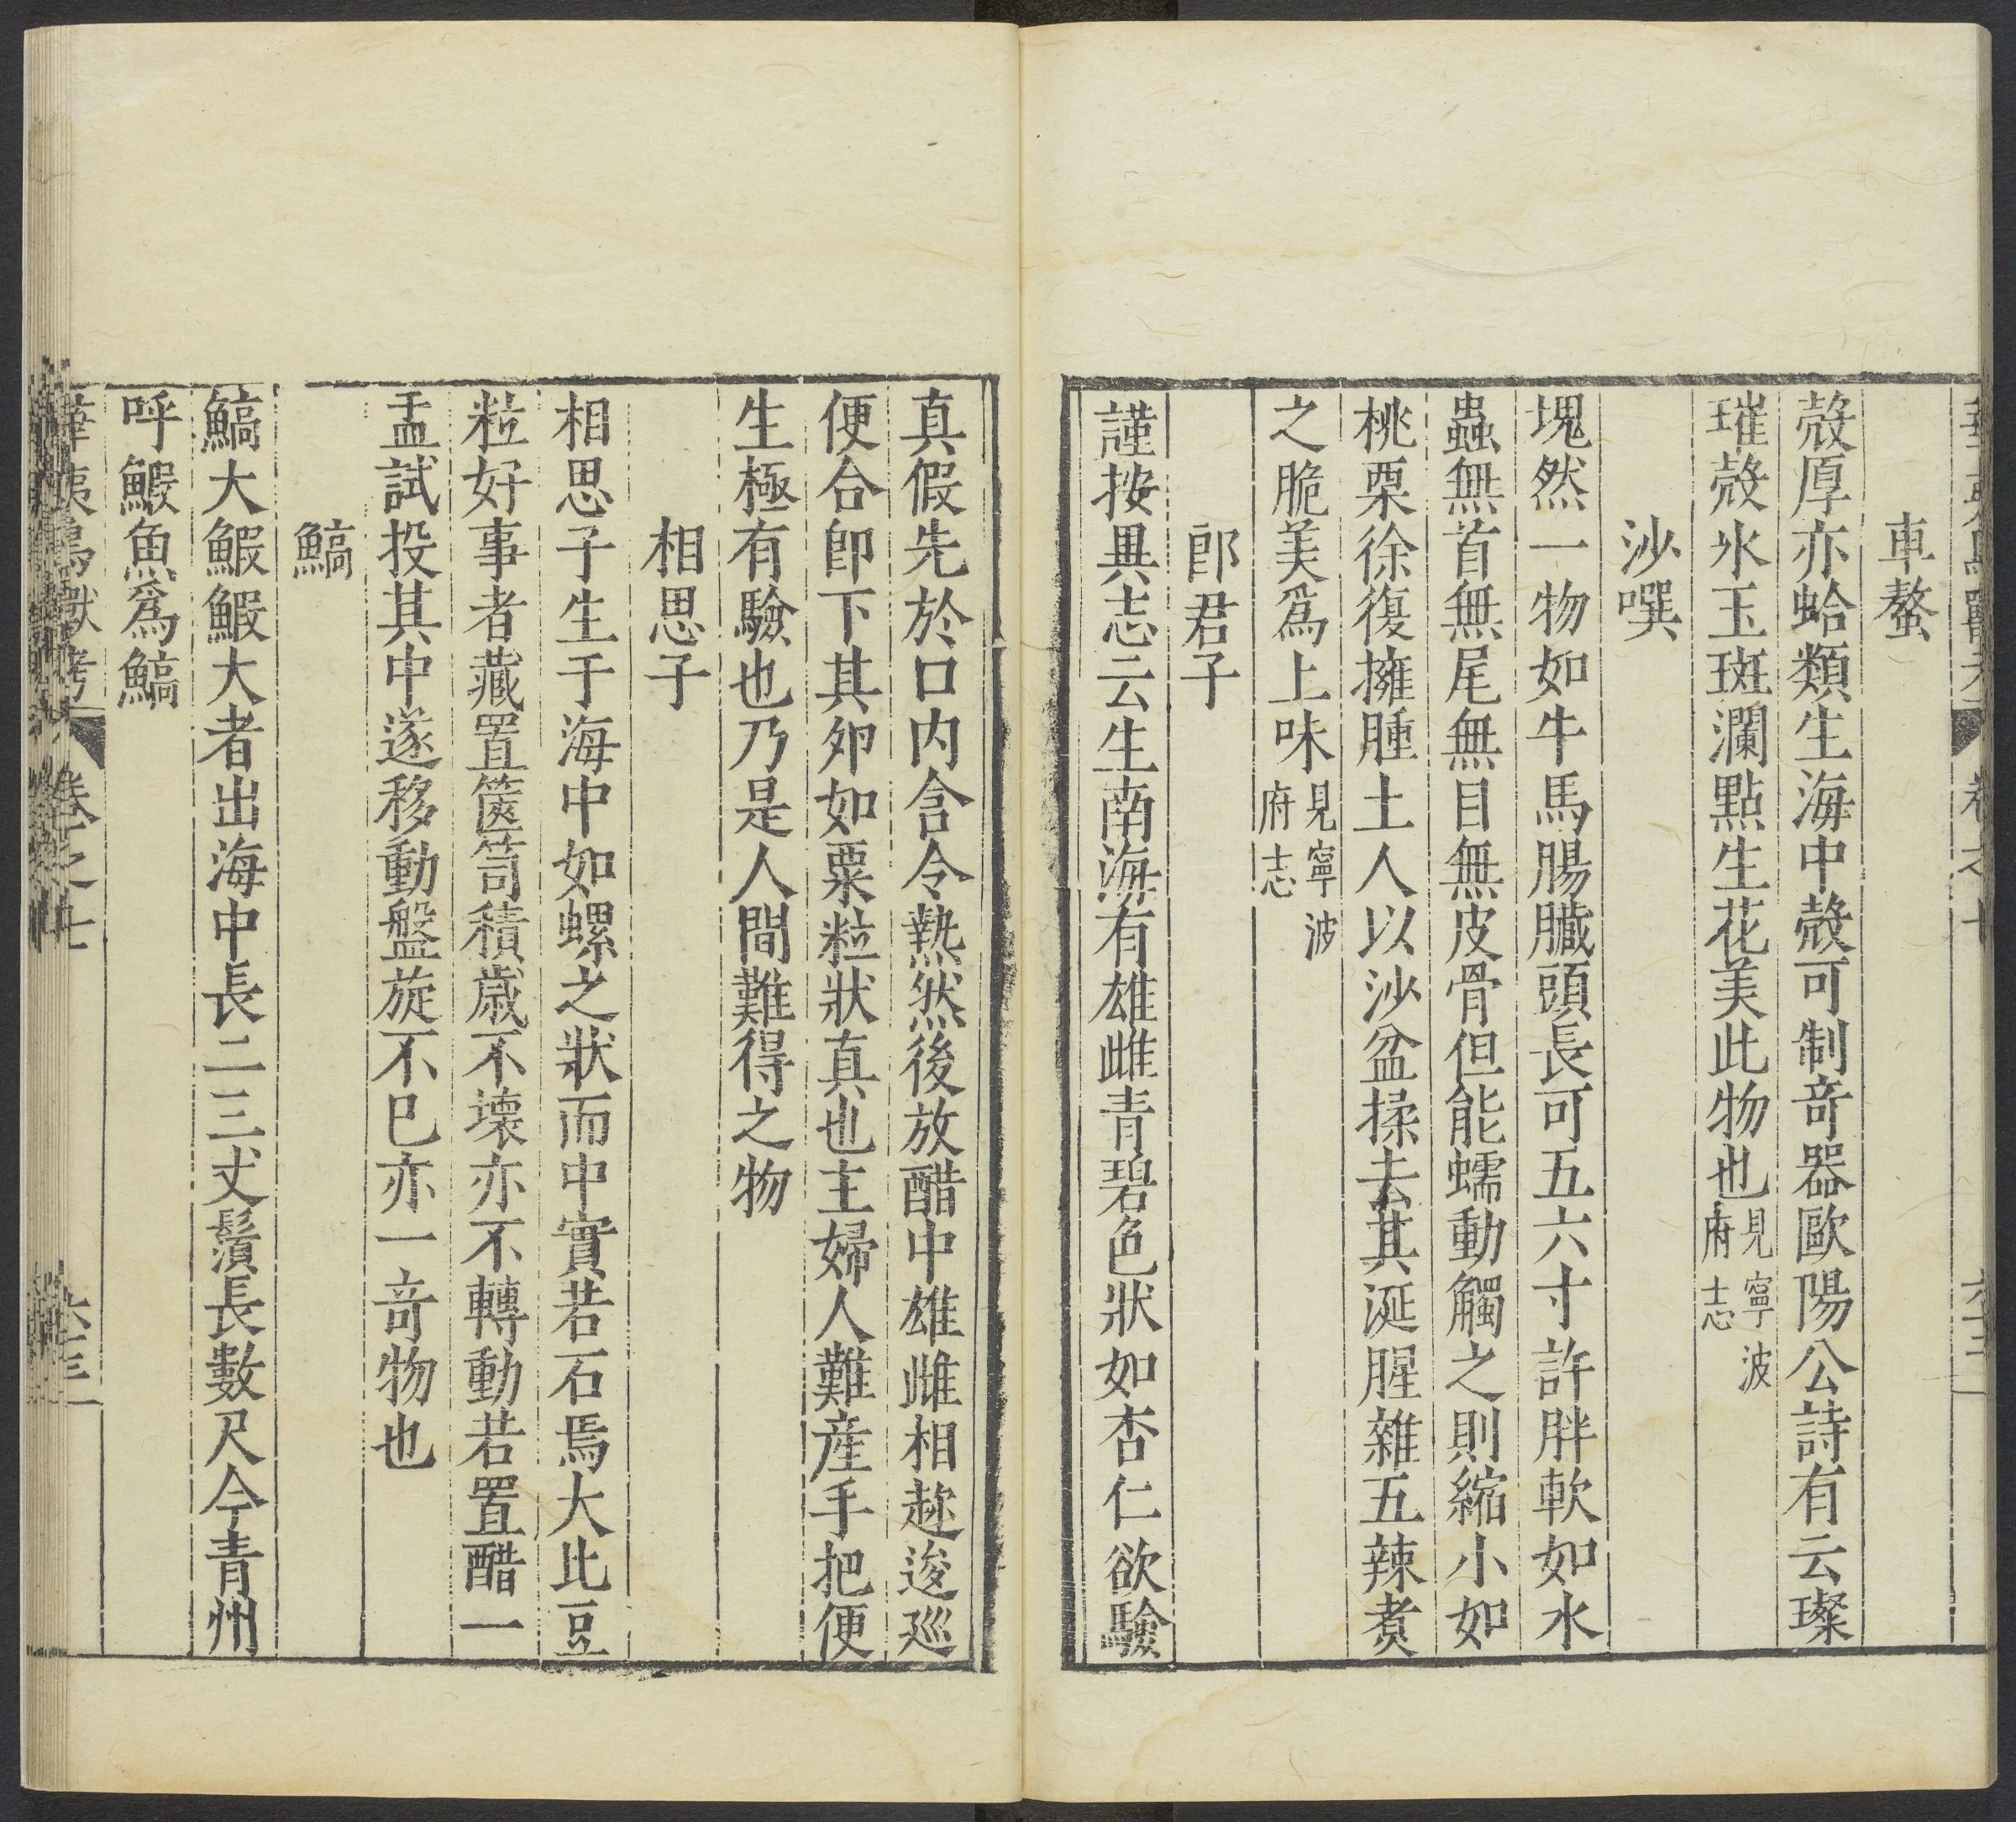 車螯
殼厚亦蛤類生海中殼可制竒器歐陽公詩有云璨
璀殼氷玉斑斕點生花美此物也見寧波府志
沙噀
塊然一物如牛馬腸臟頭長可五六寸許胖軟如水
蟲無首無尾無目無皮骨但能蠕動觸之則縮小如
桃栗徐復擁腫土人以沙盆揉去其涎腥雜五辣煮
之脆美爲上味見寧波府志
郎君子
謹按異志云生南海有雄雌青碧色狀如杏仁欲驗
真假先於口内含令熱然後放醋中雄雌相趂逡廵
便合卽下其夘如粟粒狀真也主婦人難産手把便
生極有驗也乃是人間難得之物
相思子
相思子生于海中如螺之狀而中實若石焉大比豆
粒好事者藏置篋笥積歲不壞亦不轉動若置醋一
盂試投其中遂移動盤旋不已亦一竒物也
鰝
鰝大鰕鰕大者出海中長二三丈鬚長數尺今青州
呼鰕魚爲鰝